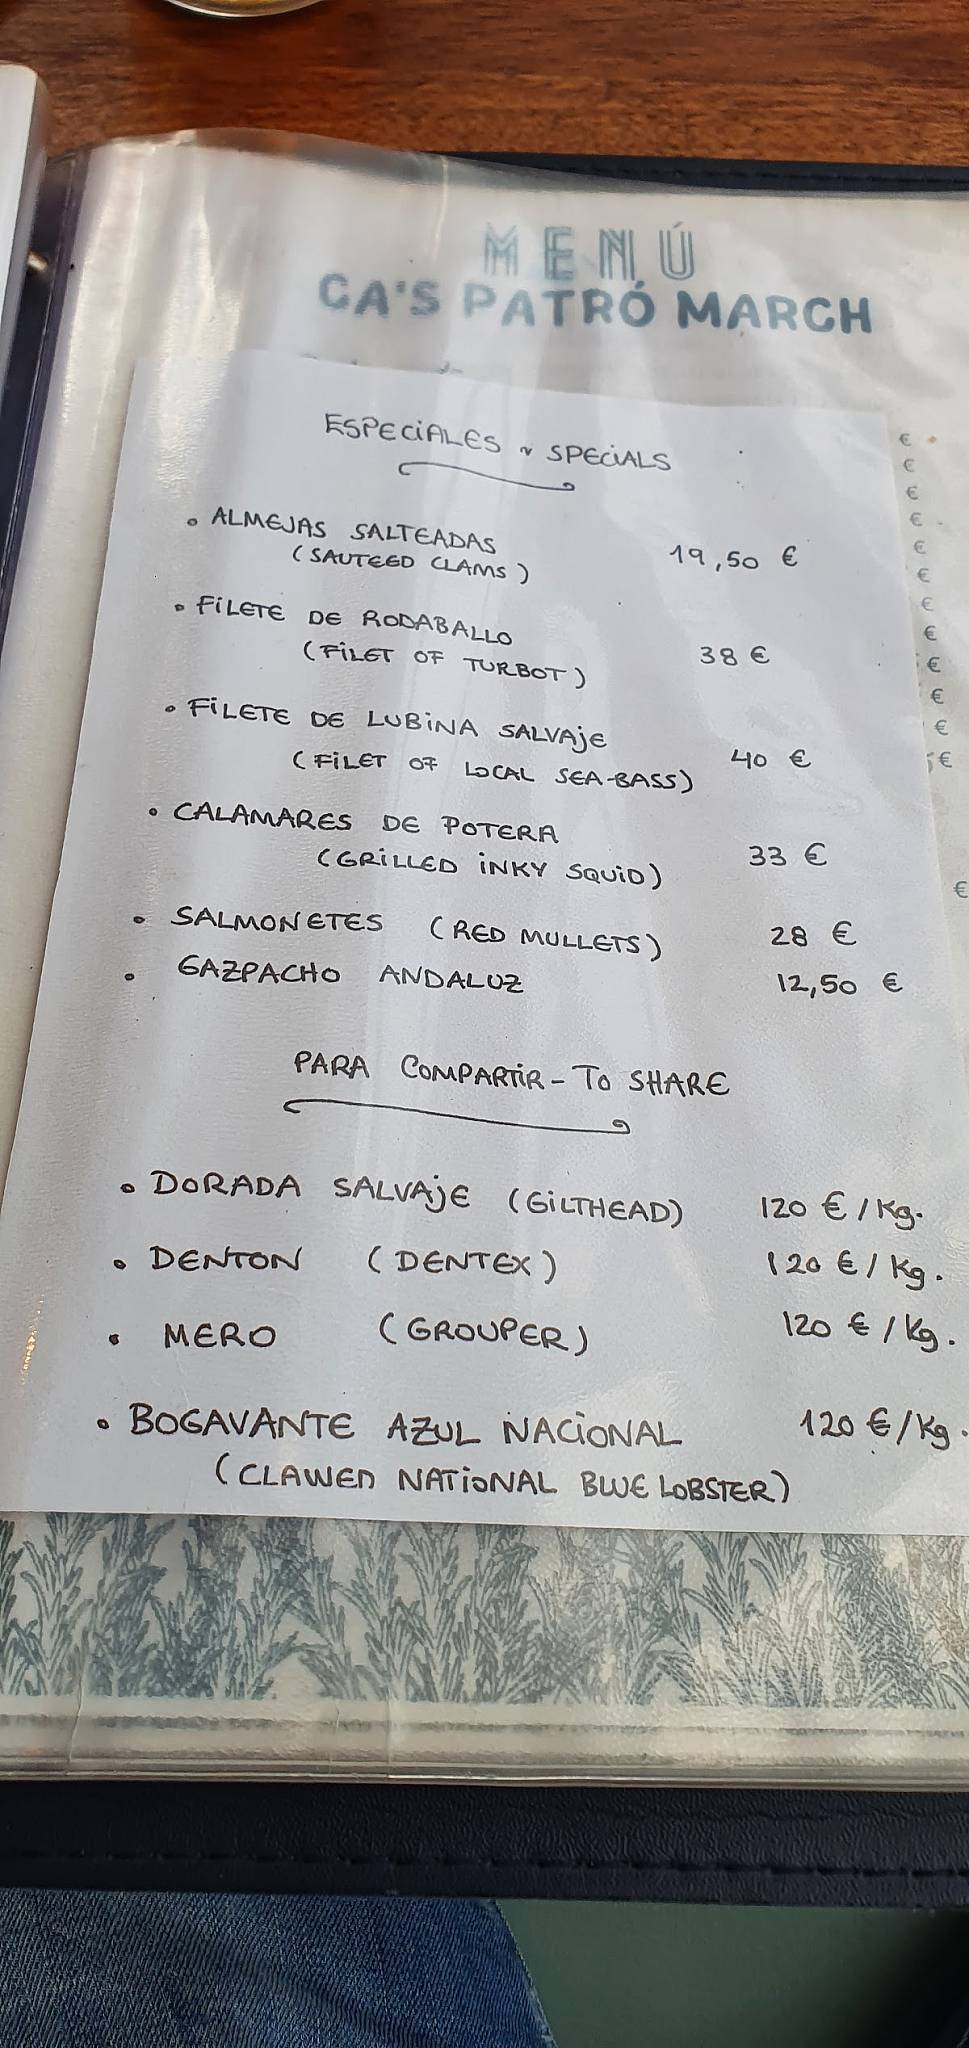 MENÚ
CA'S PATRÓ MARCH
ESPECIALES ~ SPECIALS
• ALMEJAS SALTEADAS
(SAUTEED CLAMS) 19,50 €
• FILETE DE RODABALLO
(FILET OF TURBOT) 38 €
• FILETE DE LUBINA SALVAJE
(FILET OF LOCAL SEA-BASS) 40 €
• CALAMARES DE POTERA
(GRILLED INKY SQUID) 33 €
• SALMONETES (RED MULLETS) 28 €
• GAZPACHO ANDALUZ 12,50 €
PARA COMPARTIR - TO SHARE
• DORADA SALVAJE (GILTHEAD) 120 €/Kg.
• DENTON (DENTEX) 120 €/Kg.
• MERO (GROUPER) 120 €/Kg.
• BOGAVANTE AZUL NACIONAL 120 €/Kg.
(CLAWED NATIONAL BLUE LOBSTER)
€
€
€
€
€
€
€
€
€
€
€
€
€